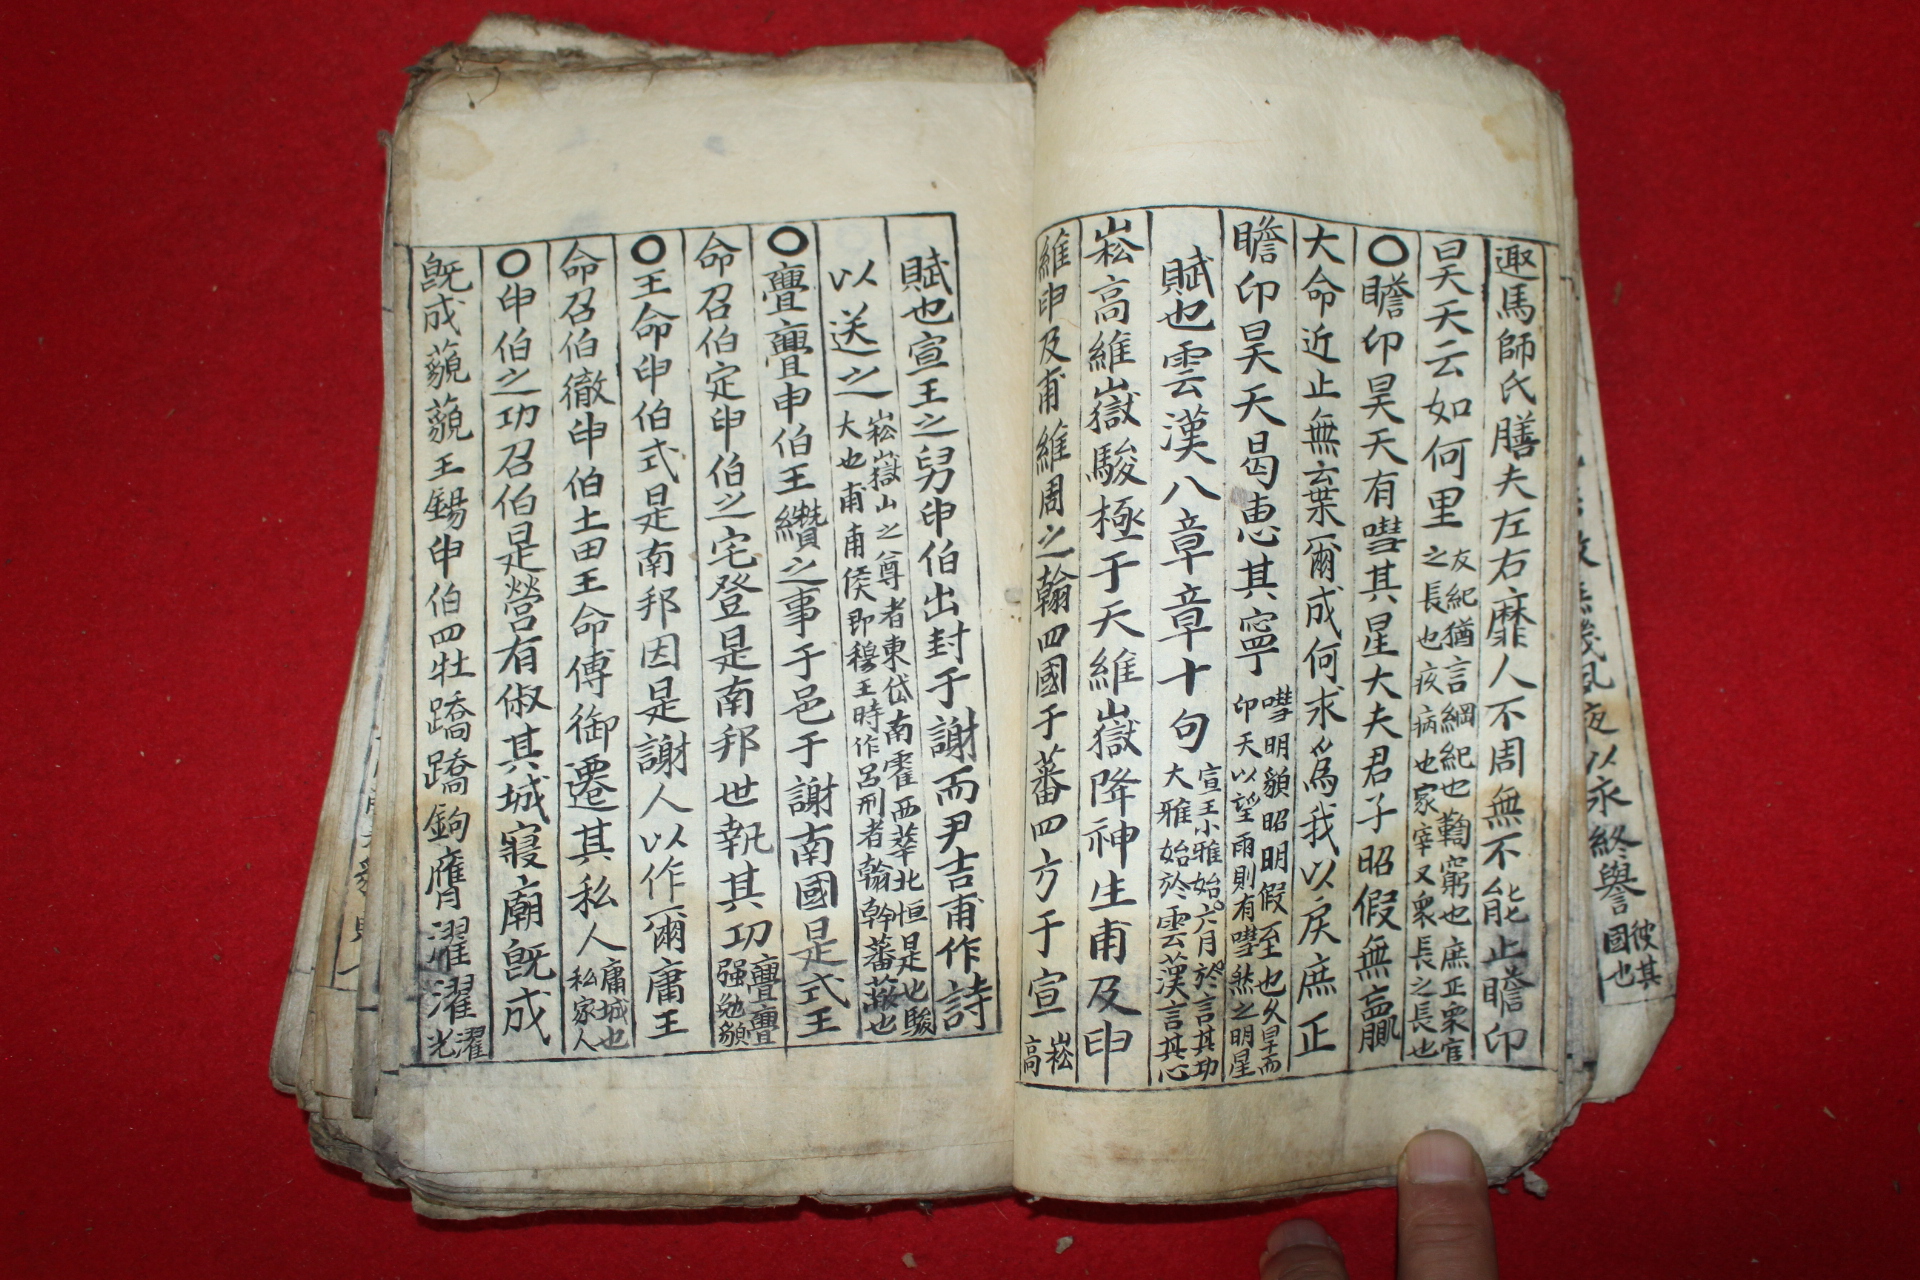 無幾夙夜以永終譽 彼其
國也
趣馬師氏膳夫左右靡人不周無不能止瞻卬
昊天云如何里 友紀猶言綱紀也鞫窮也庶正衆官
之長也疚病也家宰又衆長之長也
〇瞻卬昊天有嘒其星大夫君子昭假無贏
大命近止無棄爾成何求爲我以戾庶正
瞻卬昊天曷惠其寧 嘒明貌昭明假至也久旱而
卬天以望雨則有嘒然之明星
賦也雲漢八章章十句 宣王小雅始六月於言其功
大雅始於雲漢言其心
崧高維嶽駿極于天維嶽降神生甫及申
維申及甫維周之翰四國于蕃四方于宣 崧
高
賦也宣王之舅申伯出封于謝而尹吉甫作詩
以送之 崧嶽山之尊者東岱南霍西華北恒是也駿
大也甫甫侯即穆王時作呂刑者翰幹蕃蔽也
〇亹亹申伯王纘之事于邑于謝南國是式王
命召伯定申伯之宅登是南邦世執其功 亹亹
强勉貌
〇王命申伯式是南邦因是謝人以作爾庸王
命召伯徹申伯土田王命傅御遷其私人 庸城也
私家人
〇申伯之功召伯是營有俶其城寢廟旣成
旣成藐藐王錫申伯四牡蹻蹻鉤膺濯濯 濯
光